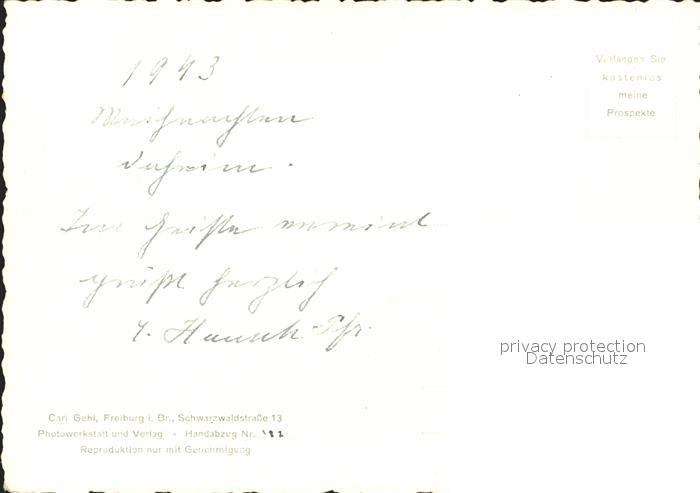 1943
Weihnachten
daheim.
Im Geiste vereint
grüßt herzlich
Pfr.
Verlangen Sie
kostenlos
meine
Prospekte
privacy protection
Datenschutz
Carl Gehl, Freiburg i. Br., Schwarzwaldstraße 13
Photowerkstatt und Verlag - Handabzug Nr.
Reproduktion nur mit Genehmigung